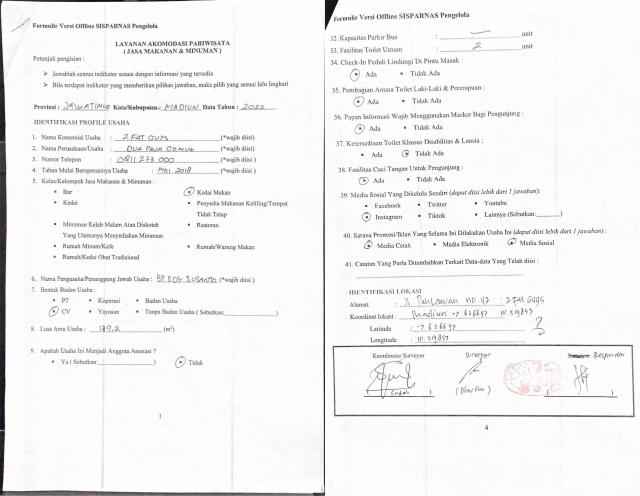 Formulir Versi Offline SISPARNAS Pengelola
LAYANAN AKOMODASI PARIWISATA
( JASA MAKANAN & MINUMAN )
Petunjuk pengisian :
➤ Jawablah semua indikator sesuai dengan informasi yang tersedia
➤ Bila terdapat indikator yang memberikan pilihan jawaban, maka pilih yang sesuai lalu lingkari
Provinsi : JAWATIMUR Kota/Kabupaten : MADIUN Data Tahun : 2022
IDENTIFIKASI PROFILE USAHA
1. Nama Komersial Usaha : 2 FAT GUYS (*wajib diisi)
2. Nama Perusahaan/Usaha : DUA PRIA GEMUK (*wajib diisi)
3. Nomor Telepon : 0811 273 000 (*wajib diisi)
4. Tahun Mulai Beroperasinya Usaha : MEI 2018 (*wajib diisi)
5. Kelas/Kelompok Jasa Makanan & Minuman :
• Bar
• Kedai Makan
• Kedai
• Penyedia Makanan Keliling/Tempat Tidak Tetap
• Minuman Kelab Malam Atau Diskotek Yang Utamanya Menyediakan Minuman
• Restoran
• Rumah Minum/Kafe
• Rumah/Warung Makan
• Rumah/Kedai Obat Tradisional
6. Nama Pengusaha/Penanggung Jawab Usaha : BP. EDY SUSANTO (*wajib diisi )
7. Bentuk Badan Usaha :
• PT • Koperasi • Badan Usaha
• CV • Yayasan • Tanpa Badan Usaha ( Sebutkan: )
8. Luas Area Usaha : 179,2 (m²)
9. Apakah Usaha Ini Menjadi Anggota Asosiasi ?
• Ya ( Sebutkan: ) • Tidak
1
Formulir Versi Offline SISPARNAS Pengelola
32. Kapasitas Parkir Bus : – unit
33. Fasilitas Toilet Umum : 2 unit
34. Check-In Peduli Lindungi Di Pintu Masuk :
• Ada • Tidak Ada
35. Pembagian Antara Toilet Laki-Laki & Perempuan :
• Ada • Tidak Ada
36. Papan Informasi Wajib Menggunakan Masker Bagi Pengunjung :
• Ada • Tidak Ada
37. Ketersediaan Toilet Khusus Disabilitas & Lansia :
• Ada • Tidak Ada
38. Fasilitas Cuci Tangan Untuk Pengunjung :
• Ada • Tidak Ada
39. Media Sosial Yang Dikelola Sendiri (dapat diisi lebih dari 1 jawaban):
• Facebook • Twitter • Youtube
• Instagram • Tiktok • Lainnya (Sebutkan: )
40. Sarana Promosi/Iklan Yang Selama Ini Dilakukan Usaha Ini (dapat diisi lebih dari 1 jawaban) :
• Media Cetak • Media Elektronik • Media Sosial
41. Catatan Yang Perlu Ditambahkan Terkait Data-data Yang Telah diisi :
IDENTIFIKASI LOKASI
Alamat : Jl. Pahlawan no. 42 - 2 Fat GUYS
Koordinat lokasi : Madiun -7.626697 111.519857
Latitude : -7.626697
Longitude : 111.519857
Koordinator Surveyor Surveyor Responden
( Endah )
4